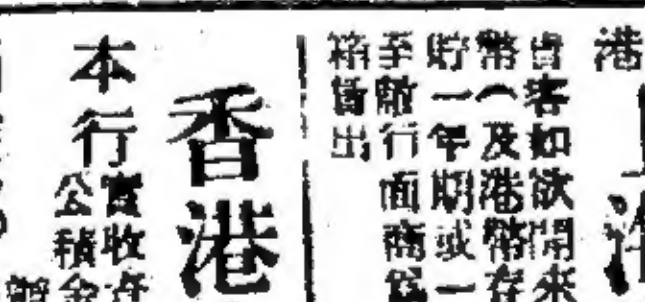 港
貴客如欲開來
幣(及港幣存
貯一年期或一
至敝行面商
箱賃出
香港
本行
實收資
公積金